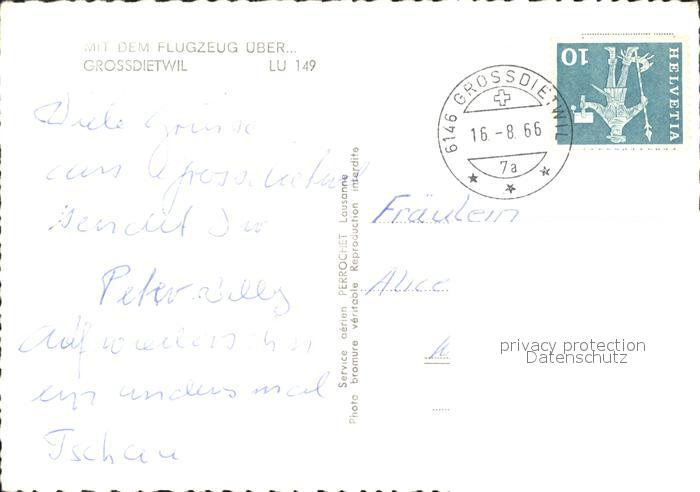 MIT DEM FLUGZEUG ÜBER...
GROSSDIETWIL LU 149
Viele Grüsse
aus Grossdietwil
sendet Dir
Peter Willy
Auf wiedersehn
ein anders mal
Tschau
Service aérien PERROCHET Lausanne
Photo bromure véritable Reproduction interdite
6146 GROSSDIETWIL
16.-8.66
7a
HELVETIA
10
Fräulein
Alice
privacy protection
Datenschutz